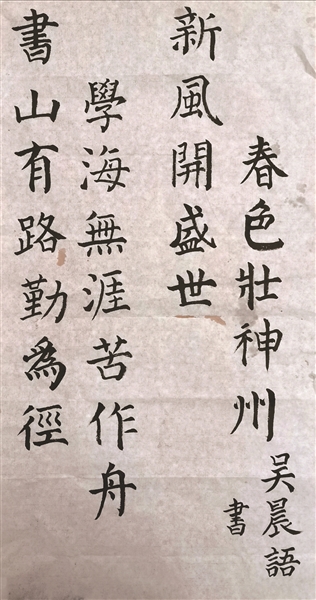 書山有路勤爲徑
學海無涯苦作舟
新風開盛世
春色壯神州
吴晨語
書